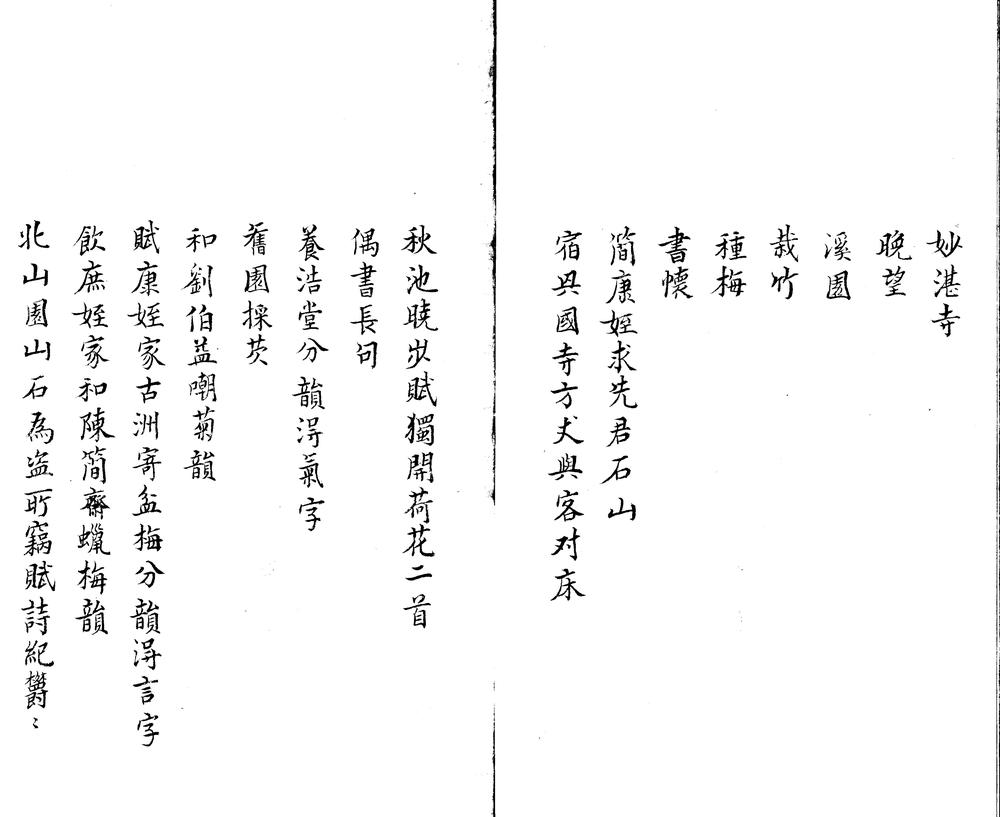 妙湛寺
晚望
溪園
栽竹
種梅
書懷
簡康姪求先君石山
宿興國寺方丈與客对床
秋池曉步賦獨開荷花二首
偶書長句
養浩堂分韻得氣字
舊園採芡
和劉伯益嘲菊韻
賦康姪家古洲寄盆梅分韻得言字
飲庶姪家和陳簡齋蠟梅韻
北山園山石為盜所竊賦詩紀欝〻